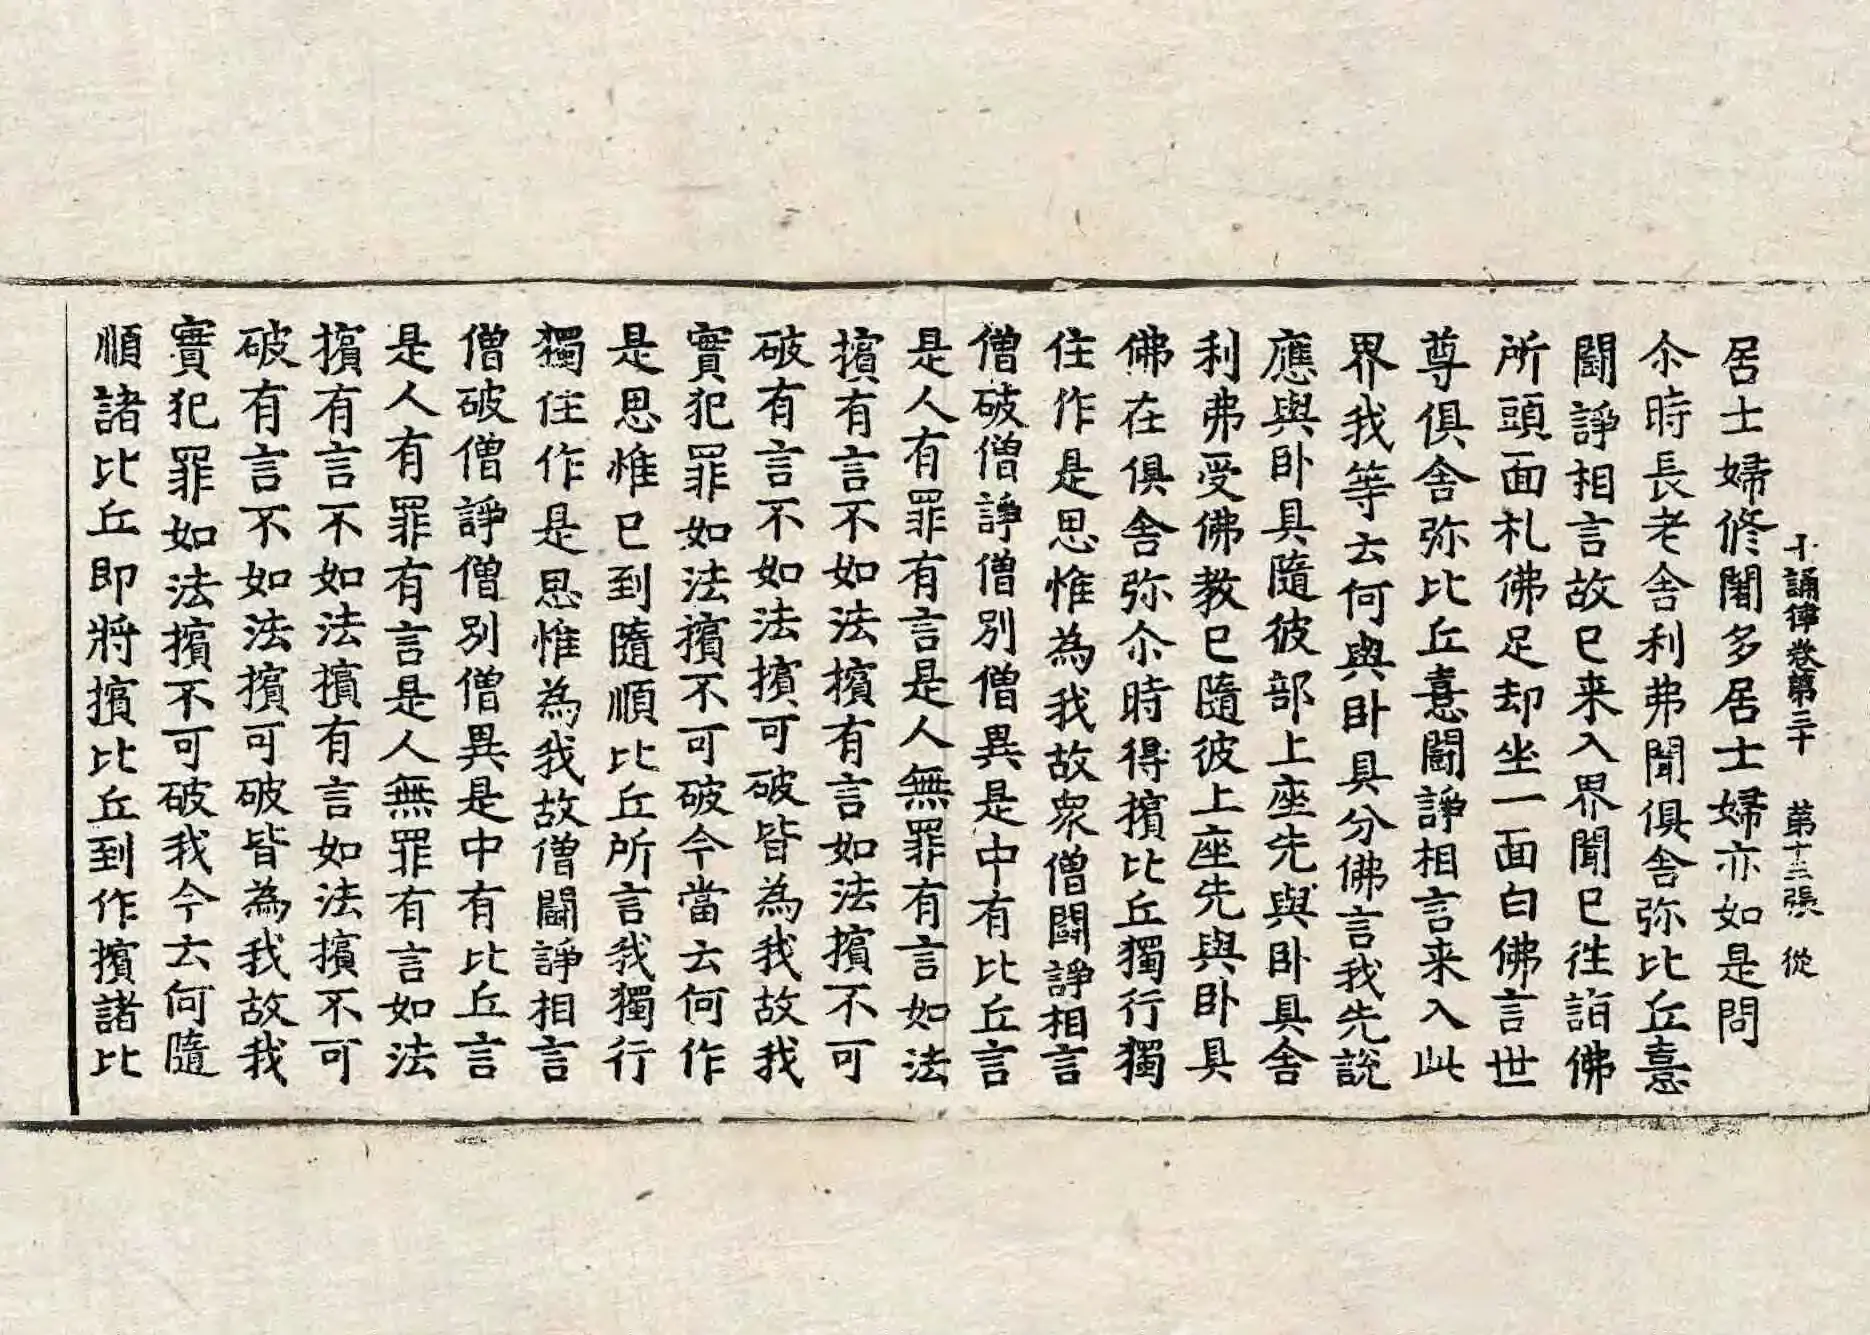 十誦律卷第三十 第十三張 從
居士婦修闍多居士婦亦如是問
尒時長老舍利弗聞俱舍弥比丘憙
鬪諍相言故已来入界聞已往詣佛
所頭面礼佛足却坐一面白佛言世
尊俱舍弥比丘憙鬪諍相言来入此
界我等云何與卧具分佛言我先說
應與卧具隨彼部上座先與卧具舍
利弗受佛教已隨彼上座先與卧具
佛在俱舍弥尒時得擯比丘獨行獨
住作是思惟為我故衆僧鬪諍相言
僧破僧諍僧別僧異是中有比丘言
是人有罪有言是人無罪有言如法
擯有言不如法擯有言如法擯不可
破有言不如法擯可破皆為我故我
實犯罪如法擯不可破今當云何作
是思惟已到隨順比丘所言我獨行
獨住作是思惟為我故僧鬪諍相言
僧破僧諍僧別僧異是中有比丘言
是人有罪有言是人無罪有言如法
擯有言不如法擯有言如法擯不可
破有言不如法擯可破皆為我故我
實犯罪如法擯不可破我今云何隨
順諸比丘即將擯比丘到作擯諸比